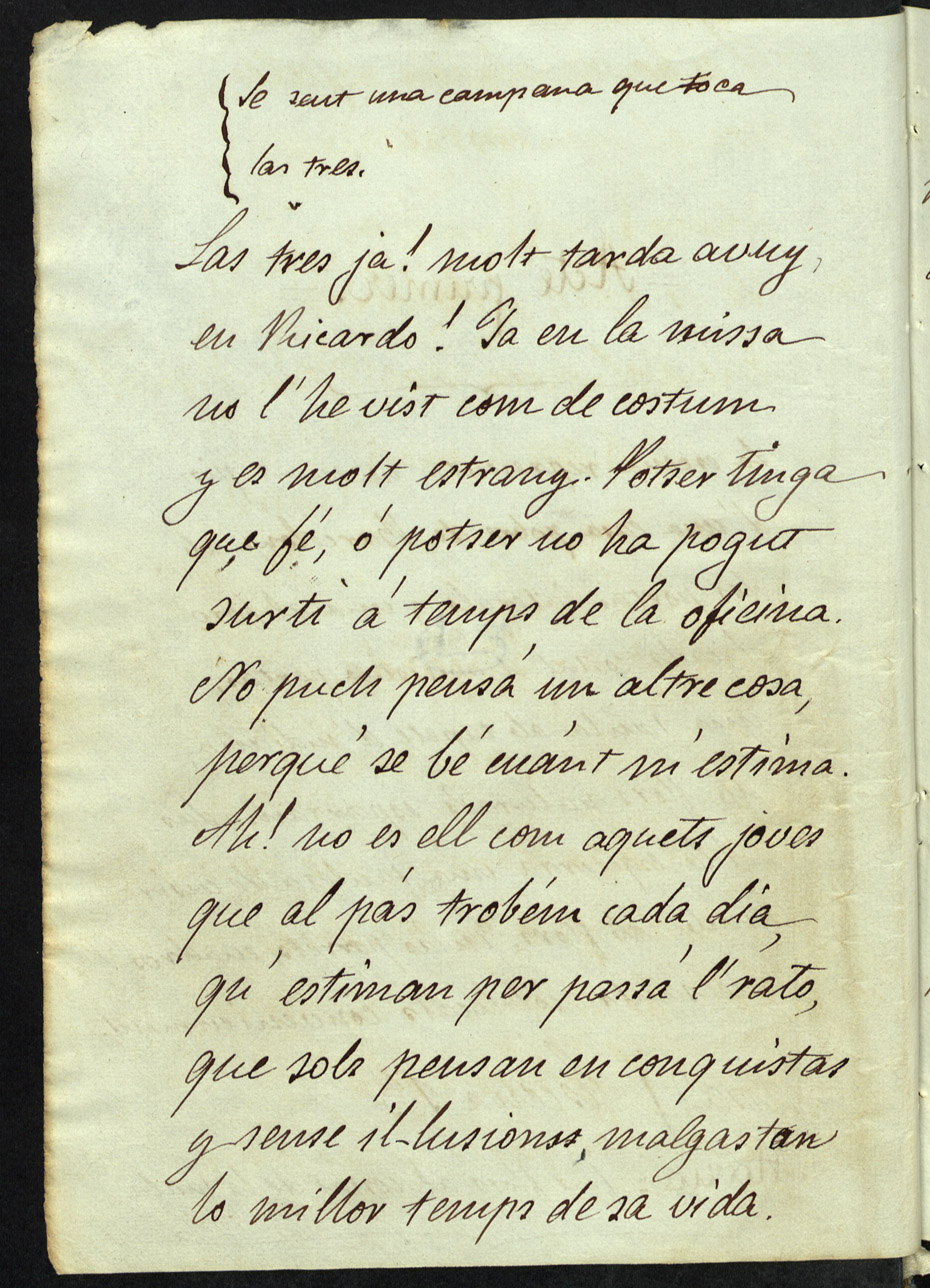 Se sent una campana que toca
las tres.
Las tres ja! molt tarda avuy,
en Ricardo! Ja en la missa
no l' he vist com de costum
y es molt estrany. Potser tinga
que fé, ó potser no ha pogut
surti á temps de la oficina.
No puch pensá un altre cosa,
perqué se bé cuánt m' estima.
Ah! no es ell com aquets joves
que al pás trobém cada dia,
qu' estiman per passá l' rato,
que sols pensan en conquistas
y sense il-lusions, malgastan
lo millor temps de sa vida.